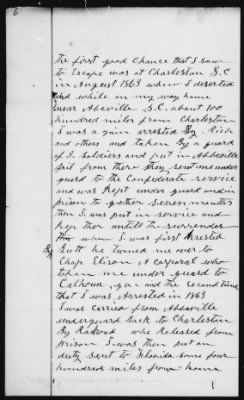 6
the first good chance that I saw
to Escape was at Charleston S.C
in August 1863 when I deserted
and while on my way home
near Abeville S.C. about 100
hundred miles from Charleston
I was a gain arrested By Rich
and others and taken By a guard
of S. Soldiers and put in Abbeville
jail from there they sent me under
guard to the Confederate service
and was Kept under guard and in
prison to gether seven months
then I was put in service and
kep ther untill the surrender
when I was first arrested
By Britt he turned me over to
Chap Elison A corporal who
taken me under guard to
Calhoun, ga. and the second time
that I was Arrested in 1863
I was carried from Abeville
underguard back to Charleston
By Railroad who Released from
prison I was then put on
duty sent to Florida some four
hundred miles from home